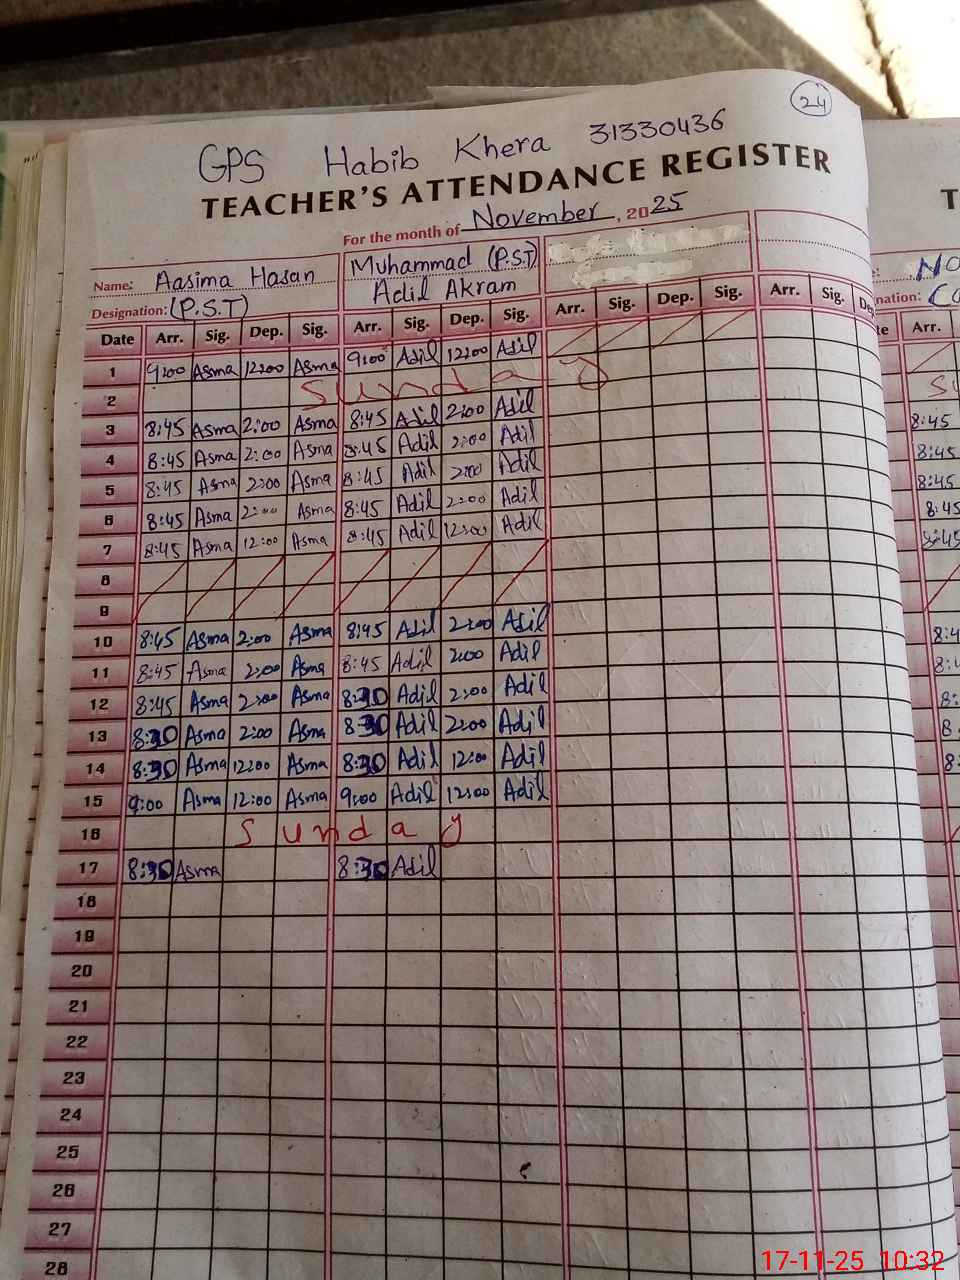 24
GPS Habib Khera 31330436
TEACHER'S ATTENDANCE REGISTER
For the month of November, 2025
Name: Aasima Hasan Muhammad (P.S.T)
Designation: (P.S.T) Adil Akram
Date Arr. Sig. Dep. Sig. Arr. Sig. Dep. Sig. Arr. Sig. Dep. Sig. Arr. Sig. De
1 9:00 Asma 12:00 Asma 9:00 Adil 12:00 Adil
2 Sunday
3 8:45 Asma 2:00 Asma 8:45 Adil 2:00 Adil
4 8:45 Asma 2:00 Asma 8:45 Adil 2:00 Adil
5 8:45 Asma 2:00 Asma 8:45 Adil 2:00 Adil
6 8:45 Asma 2:00 Asma 8:45 Adil 2:00 Adil
7 8:45 Asma 12:00 Asma 8:45 Adil 12:00 Adil
8
9
10 8:45 Asma 2:00 Asma 8:45 Adil 2:00 Adil
11 8:45 Asma 2:00 Asma 8:45 Adil 2:00 Adil
12 8:45 Asma 2:00 Asma 8:30 Adil 2:00 Adil
13 8:30 Asma 2:00 Asma 8:30 Adil 2:00 Adil
14 8:30 Asma 12:00 Asma 8:30 Adil 12:00 Adil
15 9:00 Asma 12:00 Asma 9:00 Adil 12:00 Adil
16 Sunday
17 8:30 Asma 8:30 Adil
18
19
20
21
22
23
24
25
26
27
28
T
No
nation: Co
te Arr.
S
8:45
8:45
8:45
8:45
8:45
8:4
8:4
8:
8
8:
17-11-25 10:32